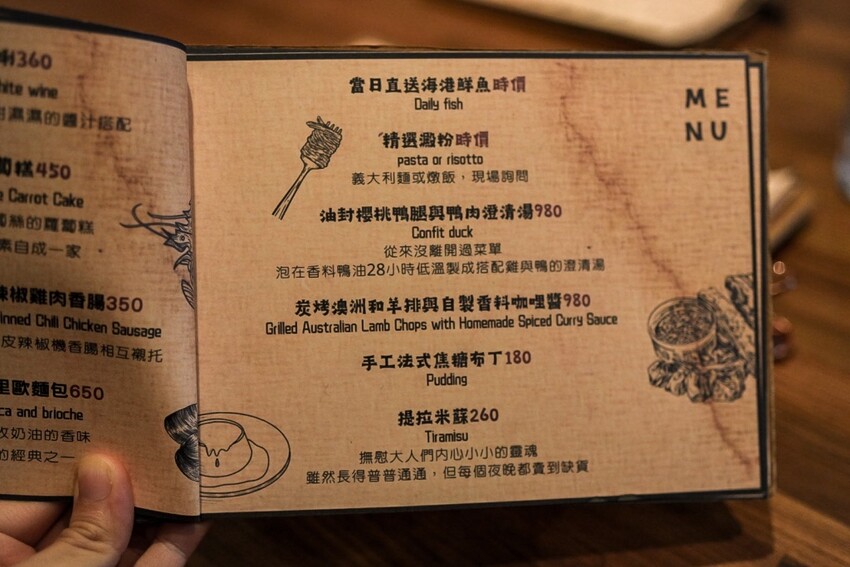 利360
hite wine
濕濕的醬汁搭配
蔔糕450
e Carrot Cake
蔔絲的蘿蔔糕
素自成一家
辣椒雞肉香腸350
inned Chili Chicken Sausage
皮辣椒機香腸相互襯托
里歐麵包650
ca and brioche
奶油的香味
的經典之一
MENU
當日直送海港鮮魚時價
Daily fish
精選澱粉時價
pasta or risotto
義大利麵或燉飯，現場詢問
油封櫻桃鴨腿與鴨肉澄清湯980
Confit duck
從來沒離開過菜單
泡在香料鴨油28小時低溫製成搭配雞與鴨的澄清湯
炭烤澳洲和羊排與自製香料咖哩醬980
Grilled Australian Lamb Chops with Homemade Spiced Curry Sauce
手工法式焦糖布丁180
Pudding
提拉米蘇260
Tiramisu
撫慰大人們內心小小的靈魂
雖然長得普普通通，但每個夜晚都賣到缺貨